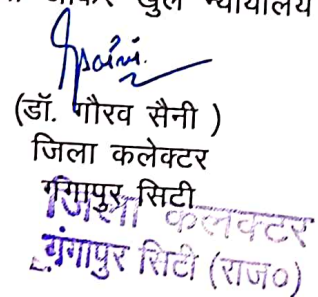 जाकर खुले न्यायालय
(डॉ. गौरव सैनी )
जिला कलेक्टर
गंगापुर सिटी
जिला कलक्टर
गंगापुर सिटी (राज०)